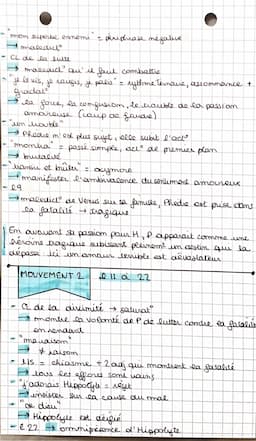 "mon superbe ennemi" = périphrase négative
→ malédict°
- CL de la lutte
→ malédict° qu'il faut combattre
- "je le vis, je rougis, je pâlis" = rythme ternaire, assonance +
gradat°
→ la force, la confusion, le trouble de la passion
amoureuse (coup de foudre)
- "un trouble"
→ Phèdre n'est plus sujet, elle subit l'act°
- "monta" = passé simple, act° de premier plan
→ brutalité
- "transir et brûler" = oxymore
→ manifester l'ambivalence du sentiment amoureux
- l 9
→ malédict° de Vénus sur sa famille, Phèdre est prise dans
la fatalité → tragique
En avouant sa passion pour H, P apparaît comme une
héroïne tragique subissant pleinement un destin qui la
dépasse ici un amour terrible et dévastateur
MOUVEMENT 2 l 11 à 22
- CL de la divinité → saturat°
→ montre la volonté de P de lutter contre la fatalité
en vendant
- "ma raison"
→ ≠ raison
- l 15 = chiasme + 2 adj qui montrent sa fatalité
→ tous ses efforts sont vains
- "j'adorais Hippolyte" = rejet
→ insister sur la cause du mal
- "ce dieu"
→ Hippolyte est déifié
- l 22 → omniprésence d'Hippolyte